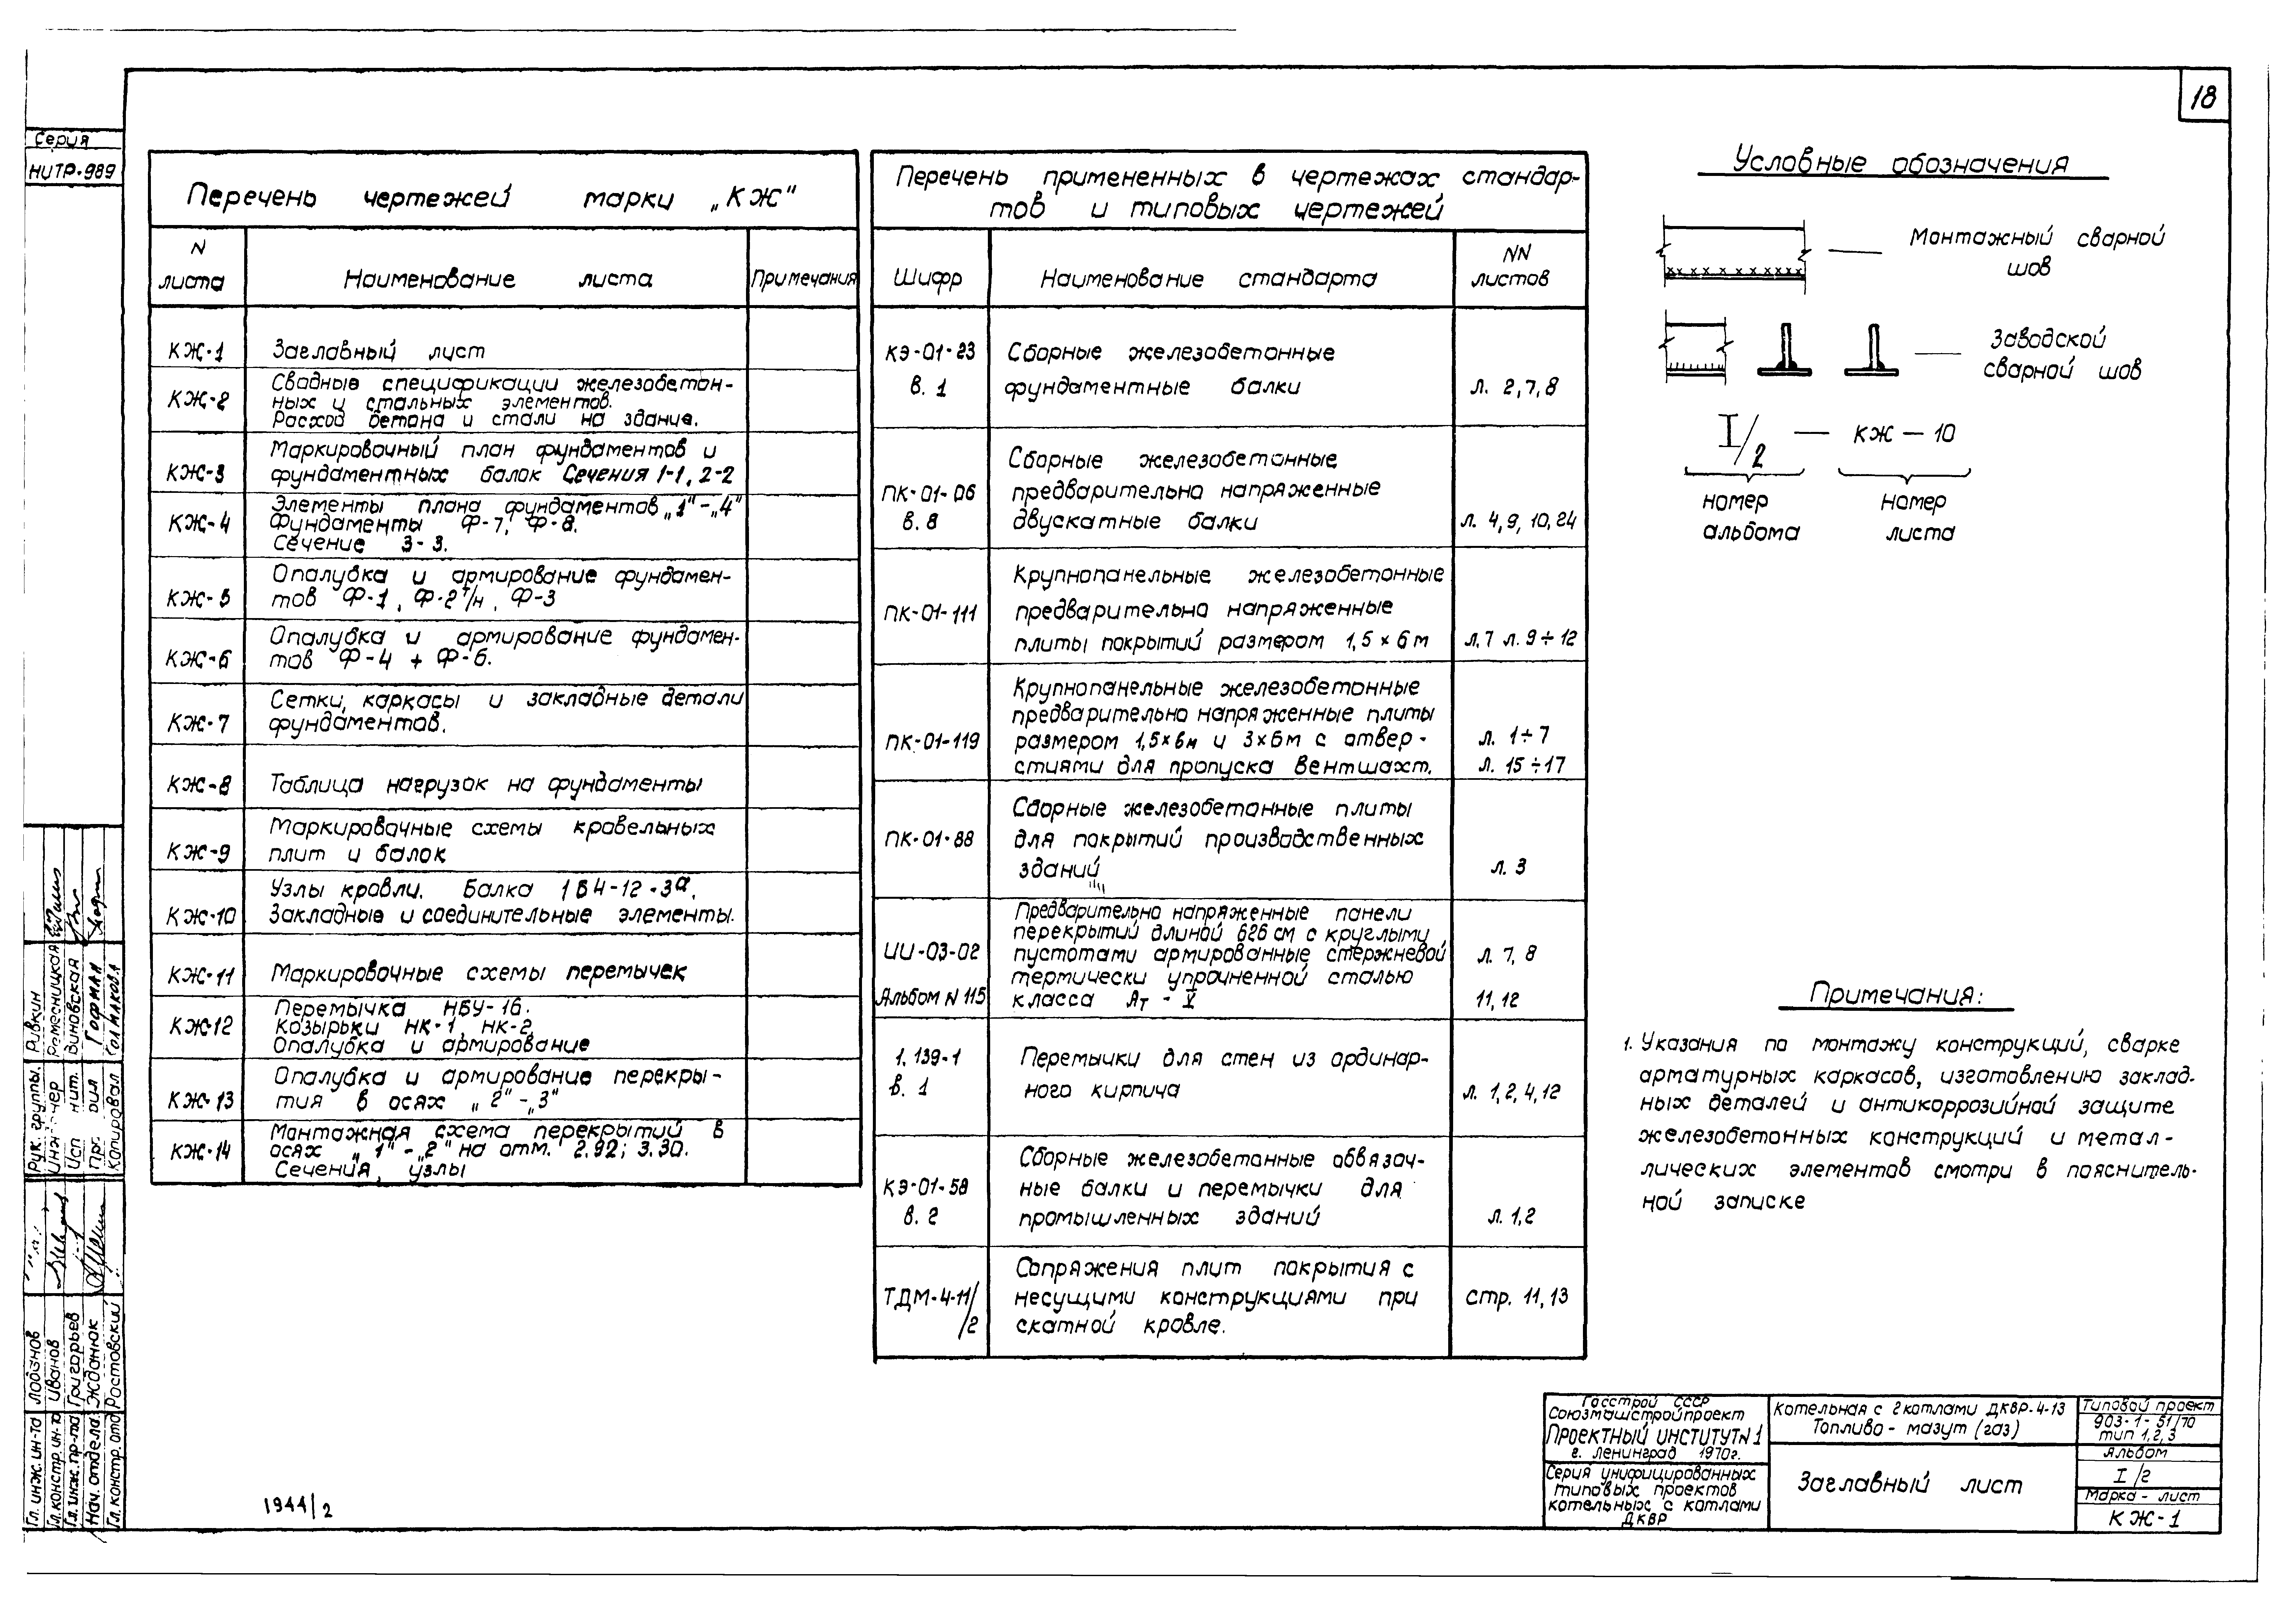 18
Серия
НИТР-989
Перечень чертежей марки „КЖ"
N листа
Наименование листа
Примечания
КЖ-1
Заглавный лист
КЖ-2
Сводные спецификации железобетон-
ных и стальных элементов.
Расход бетона и стали на здание.
КЖ-3
Маркировочный план фундаментов и
фундаментных балок Сечения 1-1, 2-2
КЖ-4
Элементы плана фундаментов „1"-„4"
Фундаменты Ф-7, Ф-8.
Сечение 3-3.
КЖ-5
Опалубка и армирование фундамен-
тов Ф-1, Ф-2т/н, Ф-3
КЖ-6
Опалубка и армирование фундамен-
тов Ф-4 + Ф-6.
КЖ-7
Сетки, каркасы и закладные детали
фундаментов.
КЖ-8
Таблица нагрузок на фундаменты
КЖ-9
Маркировочные схемы кровельных
плит и балок
КЖ-10
Узлы кровли. Балка 1Б4-12-3а.
Закладные и соединительные элементы.
КЖ-11
Маркировочные схемы перемычек
КЖ-12
Перемычка НБУ-16.
Козырьки НК-1, НК-2.
Опалубка и армирование
КЖ-13
Опалубка и армирование перекры-
тия в осях „2"-„3"
КЖ-14
Монтажная схема перекрытий в
осях „1"-„2" на отм. 2.92; 3.30.
Сечения, узлы
Перечень примененных в чертежах стандар-
тов и типовых чертежей
Шифр
Наименование стандарта
NN листов
КЭ-01-23
в. 1
Сборные железобетонные
фундаментные балки
л. 2,7,8
ПК-01-06
в. 8
Сборные железобетонные
предварительно напряженные
двускатные балки
л. 4,9,10,24
ПК-01-111
Крупнопанельные железобетонные
предварительно напряженные
плиты покрытий размером 1,5 × 6 м
л.7 л. 9÷12
ПК-01-119
Крупнопанельные железобетонные
предварительно напряженные плиты
размером 1,5×6м и 3×6м с отвер-
стиями для пропуска вентшахт.
л. 1÷7
л. 15÷17
ПК-01-88
Сборные железобетонные плиты
для покрытий производственных
зданий
л. 3
ИИ-03-02
Альбом N 115
Предварительно напряженные панели
перекрытий длиной 626 см с круглыми
пустотами армированные стержневой
термически упрочненной сталью
класса Ат-V
л. 7, 8
11,12
1.139-1
в. 1
Перемычки для стен из ординар-
ного кирпича
л. 1,2,4,12
КЭ-01-58
в. 2
Сборные железобетонные обвязоч-
ные балки и перемычки для
промышленных зданий
л. 1,2
ТДМ-4-11/2
Сопряжения плит покрытия с
несущими конструкциями при
скатной кровле.
стр. 11,13
Условные обозначения
Монтажный сварной
шов
Заводской
сварной шов
I/2 — КЖ — 10
номер альбома
номер листа
Примечания:
1. Указания по монтажу конструкций, сварке
арматурных каркасов, изготовлению заклад-
ных деталей и антикоррозийной защите
железобетонных конструкций и метал-
лических элементов смотри в пояснитель-
ной записке
Госстрой СССР
Союзмашстройпроект
Проектный институт N1
г. Ленинград 1970г.
Серия унифицированных
типовых проектов
котельных с котлами
ДКВР
Котельная с 2 котлами ДКВР-4-13
Топливо - мазут (газ)
Заглавный лист
Типовой проект
903-1-51/70
тип 1,2,3
Альбом
I/2
Марка - лист
КЖ-1
1944/2
Рук. группы. Ривкин
Ремесницкая
Виновская
Гофман
Копировал Толмакова
Гл. инж. ин-та Лобанов
Гл. констр. ин-та Иванов
Гл. инж. пр-та Григорьев
Нач. отдела Жданюк
Гл. констр. отд Ростовский